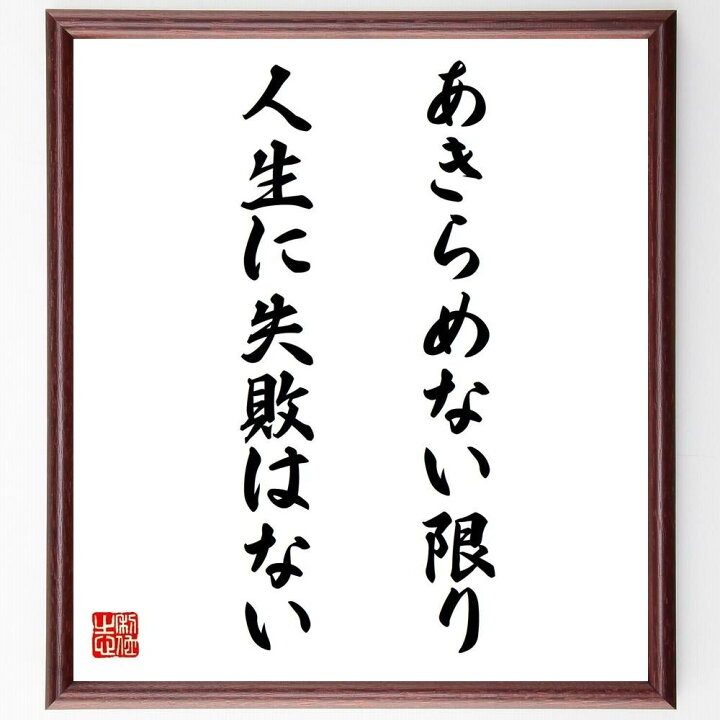 あきらめない限り
人生に失敗はない